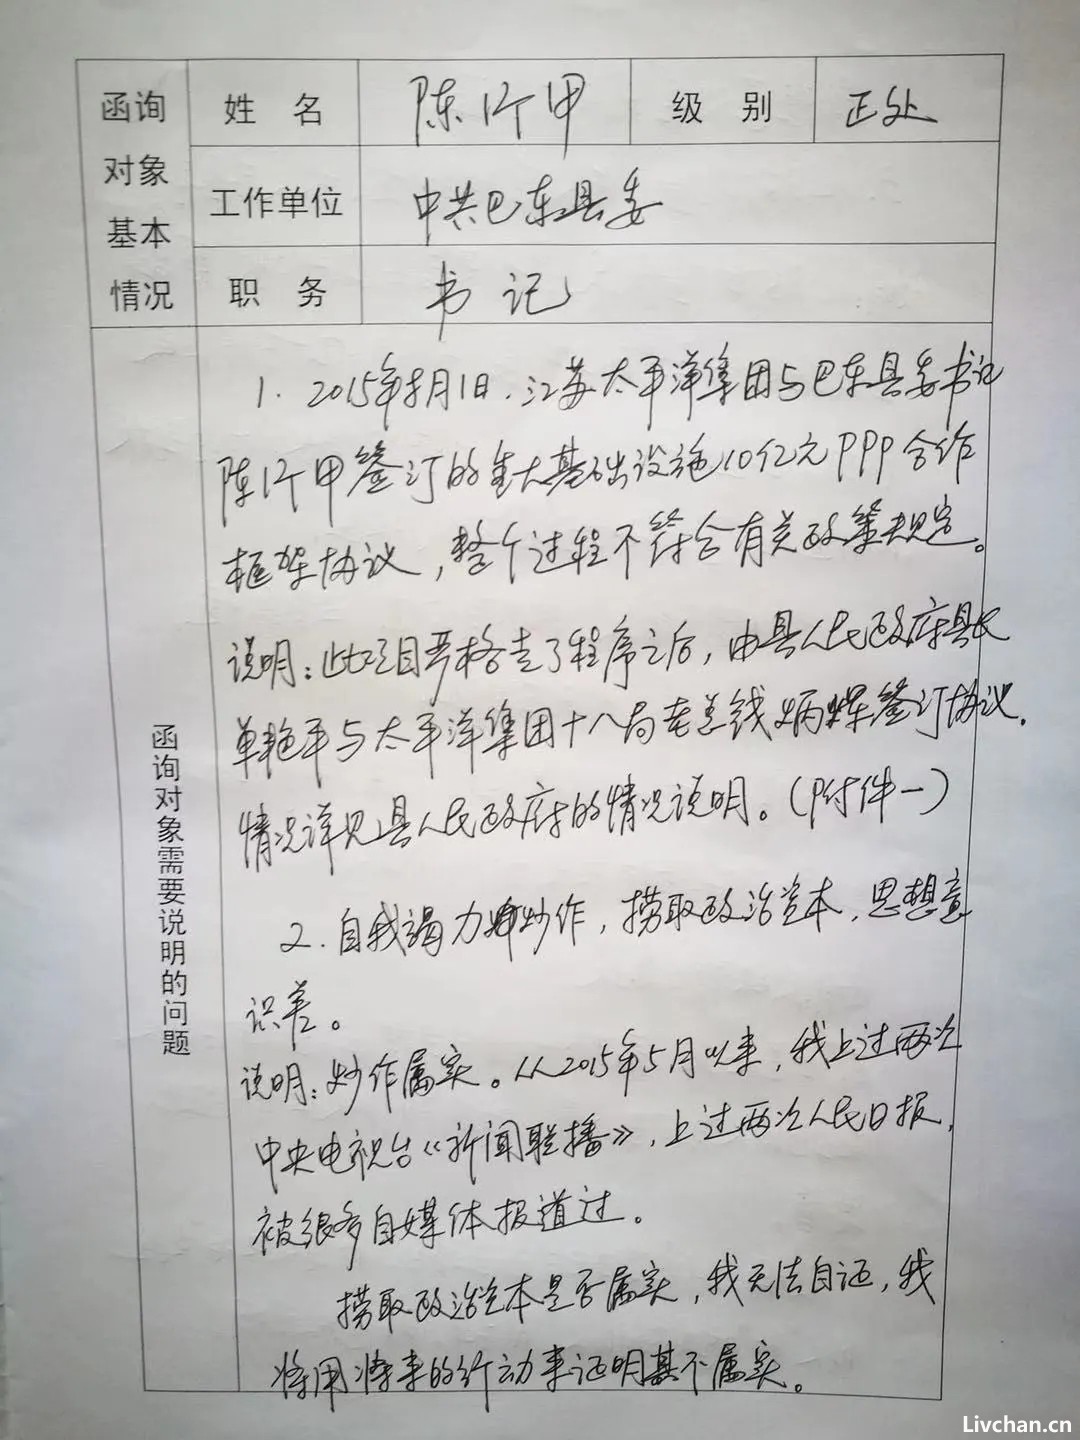 函询对象基本情况
姓 名 陈行甲 级 别 正处
工作单位 中共巴东县委
职 务 书记
函询对象需要说明的问题
1. 2015年8月1日，江苏太平洋集团与巴东县委书记
陈行甲签订的重大基础设施10亿元PPP合作
框架协议，整个过程不符合有关政策规定。
说明：此项目严格走了程序之后，由县人民政府县长
单艳平与太平洋集团十八局老总钱炳灿签订协议.
情况详见县人民政府的情况说明。（附件一）
2. 自我竭力炒作，捞取政治资本，思想意
识差。
说明：炒作属实。从2015年5月以来，我上过两次
中央电视台《新闻联播》，上过两次人民日报，
被很多自媒体报道过。
捞取政治资本是否属实，我无法自证，我
将用将来的行动来证明其不属实。
Livchan.cn